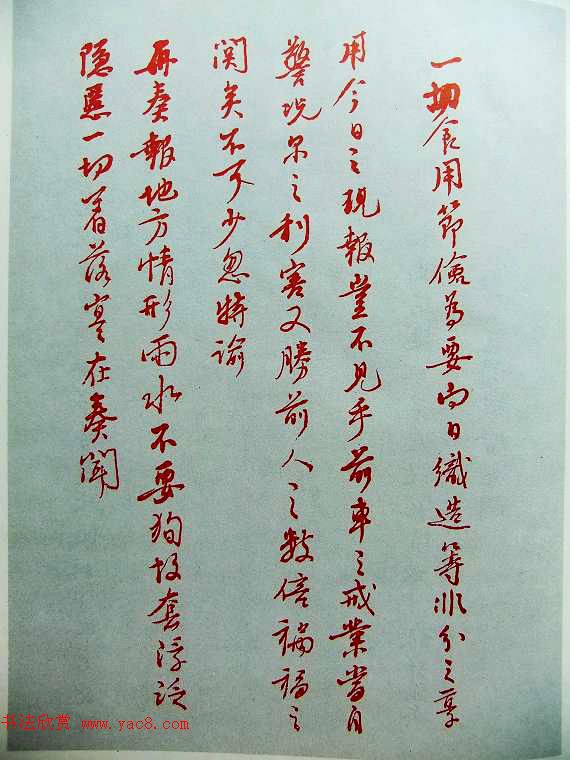 一切食用節儉為要向日織造等非分之享
用今日之現報豈不見乎前車之戒業當自
警況尔之利害又勝前人之數倍禍福之
関矣不可少忽特諭
再奏報地方情形雨水不要狥故套浮泛
隐慝一切着落寔在奏聞
书法欣赏 www.yac8.com